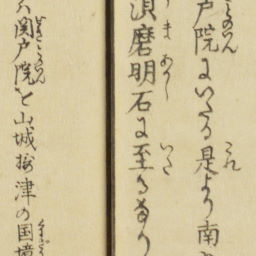 戸院にいたる是より南
須磨明石に至るなり
関戸院を山城摂津の国境